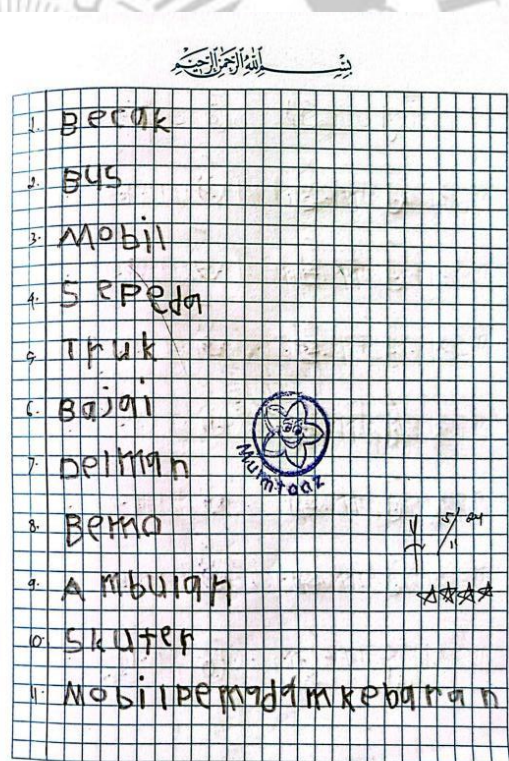 بِسْمِ اللَّهِ الرَّحْمَنِ الرَّحِيمِ
1. Becak
2. Bus
3. Mobil
4. Sepeda
5 Truk
6. Bajai
7. Delman
Mumtaaz
8. Bemo
5/11 24
9. Ambulan
10 Skuter
11. Mobilpemadamkebaran